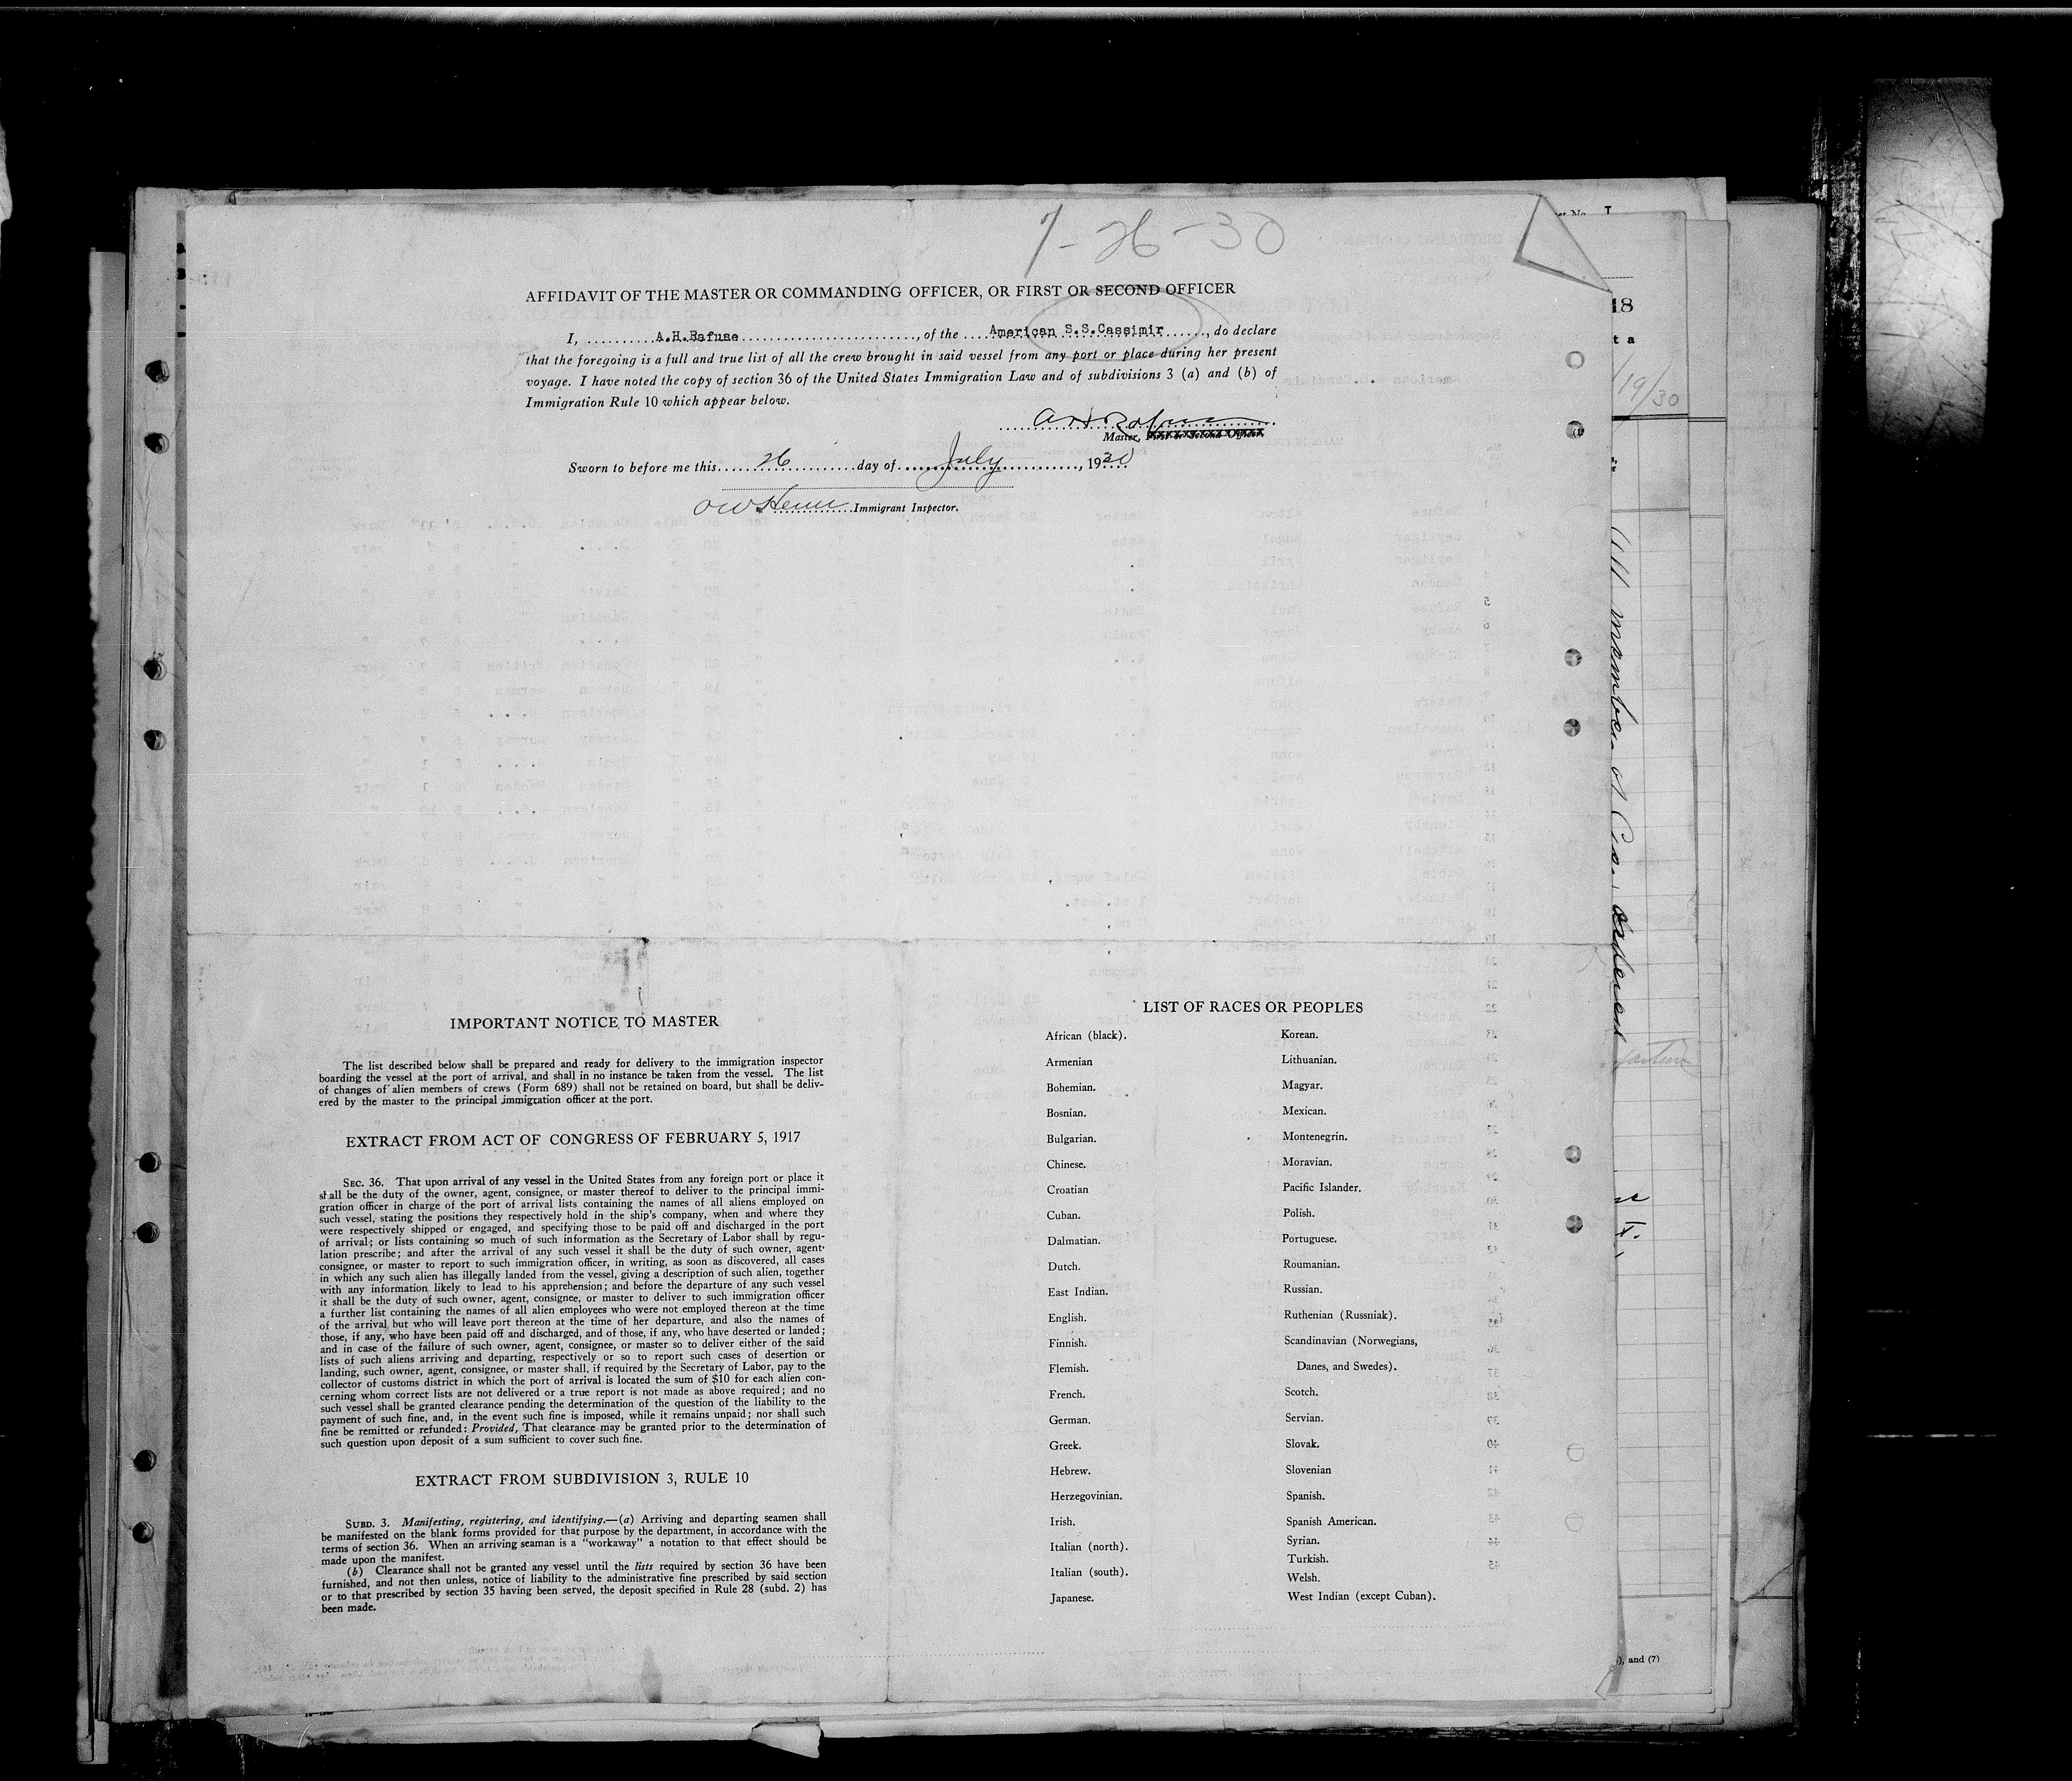 7-26-30
AFFIDAVIT OF THE MASTER OR COMMANDING OFFICER, OR FIRST OR SECOND OFFICER
I, ..........A.H.Rafuse............................., of the ....American S.S.Cassimir......., do declare
that the foregoing is a full and true list of all the crew brought in said vessel from any port or place during her present
voyage. I have noted the copy of section 36 of the United States Immigration Law and of subdivisions 3 (a) and (b) of
Immigration Rule 10 which appear below.
A H Rafuse
Master, First or Second Officer.
Sworn to before me this......26..........day of.......July............, 1930
Immigrant Inspector.
IMPORTANT NOTICE TO MASTER
The list described below shall be prepared and ready for delivery to the immigration inspector
boarding the vessel at the port of arrival, and shall in no instance be taken from the vessel. The list
of changes of alien members of crews (Form 689) shall not be retained on board, but shall be deliv-
ered by the master to the principal immigration officer at the port.
EXTRACT FROM ACT OF CONGRESS OF FEBRUARY 5, 1917
SEC. 36. That upon arrival of any vessel in the United States from any foreign port or place it
shall be the duty of the owner, agent, consignee, or master thereof to deliver to the principal immi-
gration officer in charge of the port of arrival lists containing the names of all aliens employed on
such vessel, stating the positions they respectively hold in the ship's company, when and where they
were respectively shipped or engaged, and specifying those to be paid off and discharged in the port
of arrival; or lists containing so much of such information as the Secretary of Labor shall by regu-
lation prescribe; and after the arrival of any such vessel it shall be the duty of such owner, agent,
consignee, or master to report to such immigration officer, in writing, as soon as discovered, all cases
in which any such alien has illegally landed from the vessel, giving a description of such alien, together
with any information likely to lead to his apprehension; and before the departure of any such vessel
it shall be the duty of such owner, agent, consignee, or master to deliver to such immigration officer
a further list containing the names of all alien employees who were not employed thereon at the time
of the arrival but who will leave port thereon at the time of her departure, and also the names of
those, if any, who have been paid off and discharged, and of those, if any, who have deserted or landed;
and in case of the failure of such owner, agent, consignee, or master so to deliver either of the said
lists of such aliens arriving and departing, respectively or so to report such cases of desertion or
landing, such owner, agent, consignee, or master shall, if required by the Secretary of Labor, pay to the
collector of customs district in which the port of arrival is located the sum of $10 for each alien con-
cerning whom correct lists are not delivered or a true report is not made as above required; and no
such vessel shall be granted clearance pending the determination of the question of the liability to the
payment of such fine, and, in the event such fine is imposed, while it remains unpaid; nor shall such
fine be remitted or refunded: Provided, That clearance may be granted prior to the determination of
such question upon deposit of a sum sufficient to cover such fine.
EXTRACT FROM SUBDIVISION 3, RULE 10
SUBD. 3. Manifesting, registering, and identifying.—(a) Arriving and departing seamen shall
be manifested on the blank forms provided for that purpose by the department, in accordance with the
terms of section 36. When an arriving seaman is a "workaway" a notation to that effect should be
made upon the manifest.
(b) Clearance shall not be granted any vessel until the lists required by section 36 have been
furnished, and not then unless, notice of liability to the administrative fine prescribed by said section
or to that prescribed by section 35 having been served, the deposit specified in Rule 28 (subd. 2) has
been made.
LIST OF RACES OR PEOPLES
African (black).
Armenian
Bohemian.
Bosnian.
Bulgarian.
Chinese.
Croatian
Cuban.
Dalmatian.
Dutch.
East Indian.
English.
Finnish.
Flemish.
French.
German.
Greek.
Hebrew.
Herzegovinian.
Irish.
Italian (north).
Italian (south).
Japanese.
Korean.
Lithuanian.
Magyar.
Mexican.
Montenegrin.
Moravian.
Pacific Islander.
Polish.
Portuguese.
Roumanian.
Russian.
Ruthenian (Russniak).
Scandinavian (Norwegians,
Danes, and Swedes).
Scotch.
Servian.
Slovak.
Slovenian
Spanish.
Spanish American.
Syrian.
Turkish.
Welsh.
West Indian (except Cuban).
18
t a
/19/30
), and (7)